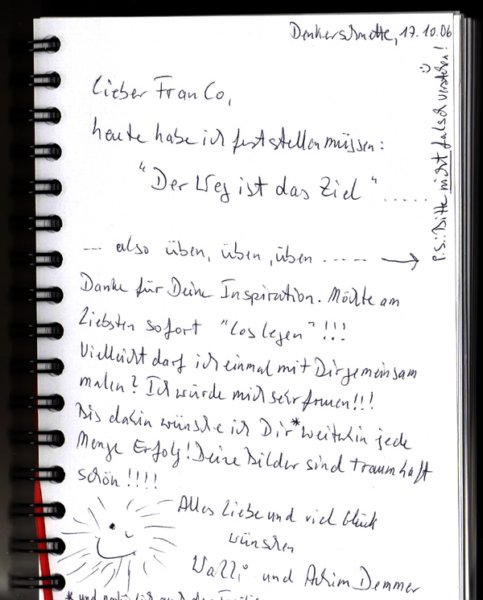 Denkerschmette, 17.10.06
Lieber FranCo,
heute habe ich feststellen müssen:
"Der Weg ist das Ziel" .....
--- also üben, üben, üben ..... →
Danke für Deine Inspiration. Möchte am
liebsten sofort "loslegen" !!!
Vielleicht darf ich einmal mit Dir gemeinsam
malen? Ich würde mich sehr freuen!!!
Bis dahin wünsche ich Dir* weiterhin jede
Menge Erfolg! Deine Bilder sind traumhaft
schön!!!!
Alles Liebe und viel Glück
wünschen
Walli und Achim Demmer
* und natürlich auch der Familie
P.S.: Bitte nicht falsch verstehen!